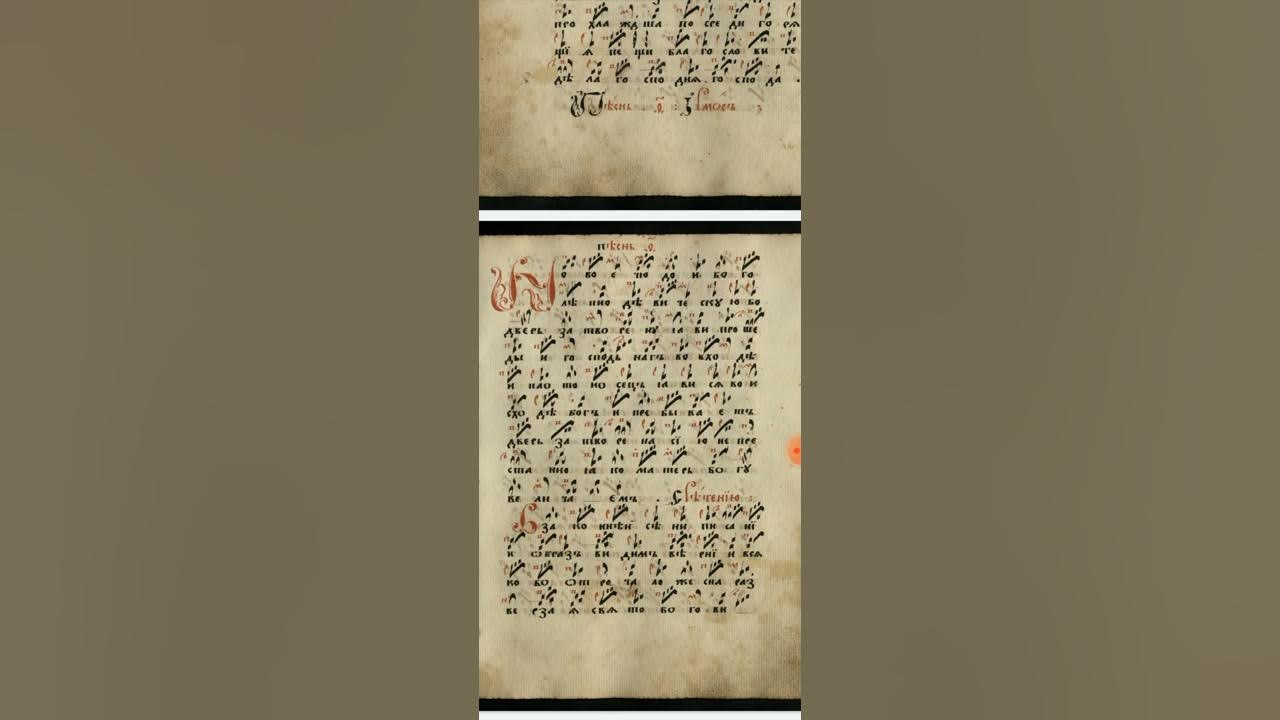 про хла жд ша по сре ди го ря
щї я пе щи бла го сло ви те
дѣ ла го спо дня го спо да .
Пѣснь ѳ҃ : Ірмосъ :
пѣснь ѳ
о во е по до и бо го
лѣ пно дѣ ви че ску ю бо
дверь за тво ре ну ꙗ ви про ше
ды и го сподь натъ во вхо дѣ
и пло то но сецъ ꙗ ви ся во и
схо дѣ богъ и пре бы ва е тъ
дверь за тво ре на сї ю не пре
ста нно ꙗ ко ма терь бо гу
ве ли ча емъ . Срѣтенїю :
В за ко ннѣй сѣ ни пи са нї
и ѡбразъ ви димъ вѣ рнї и вся
ко бо ѡт ро ча ло же сна раз
ве рза я свя то бо го ви